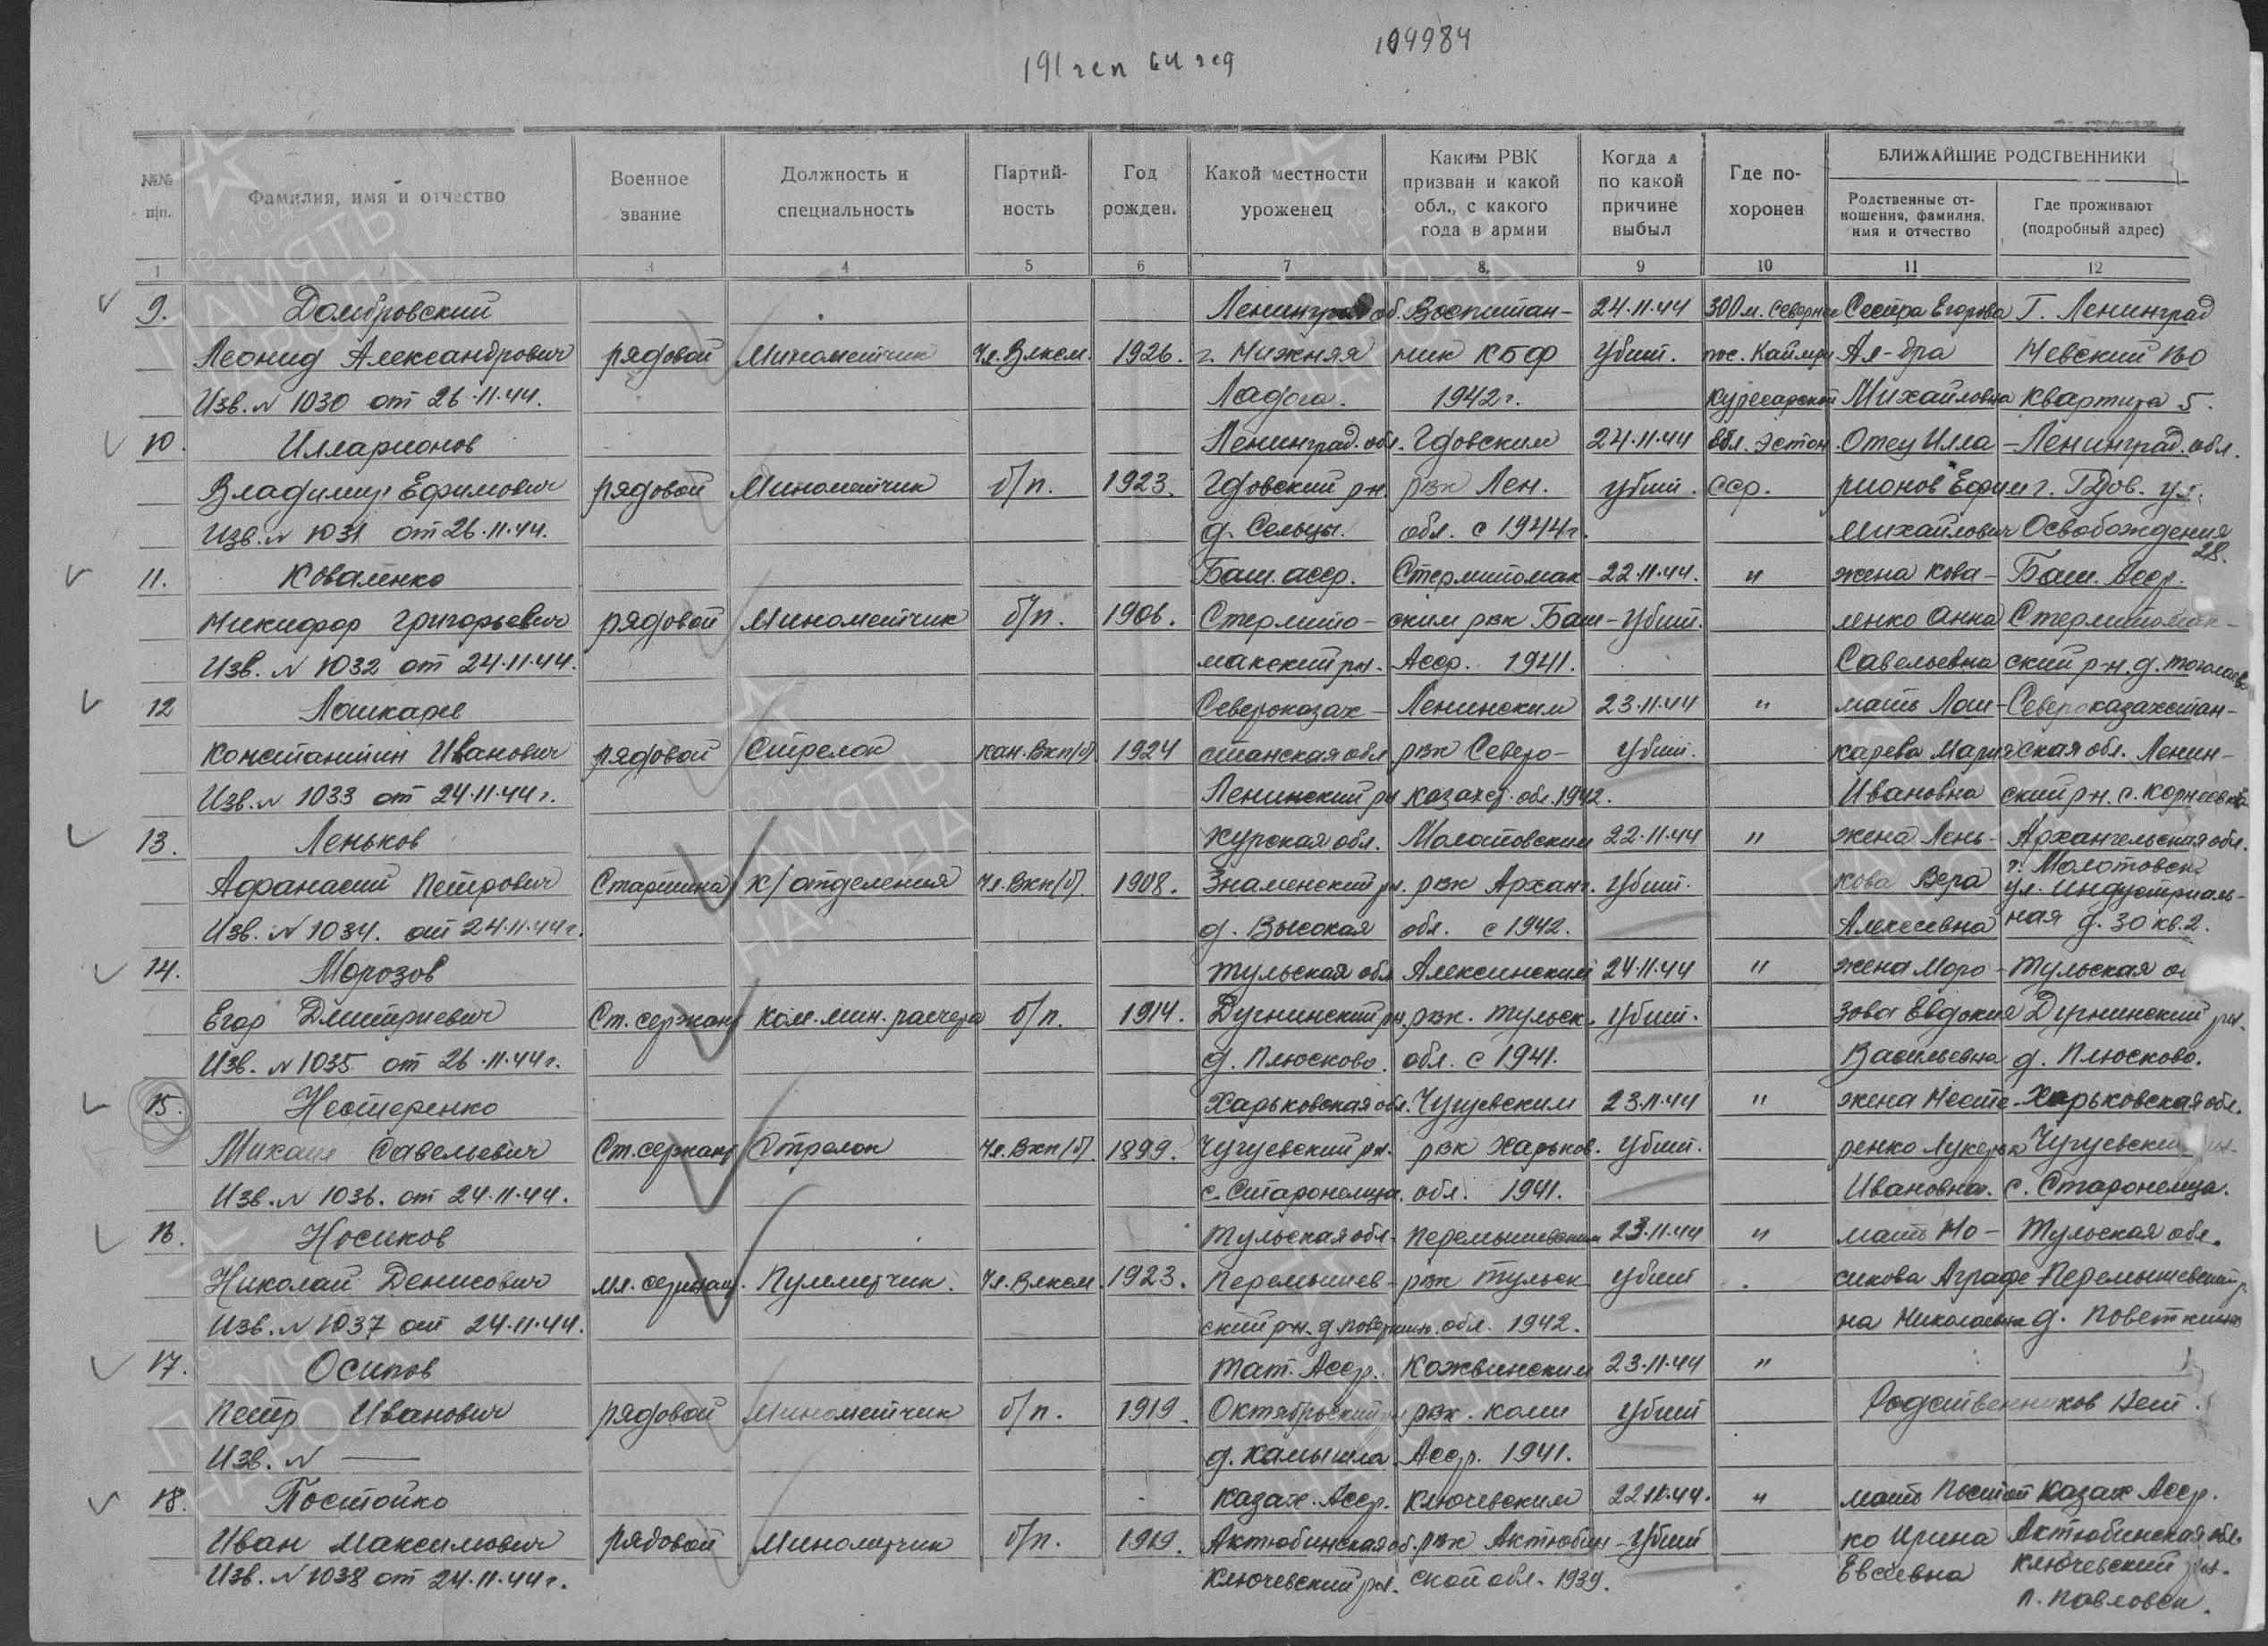 191 гсп 64 гсд
104984
№№ п/п.
Фамилия, имя и отчество
Военное звание
Должность и специальность
Партий- ность
Год рожден.
Какой местности уроженец
Каким РВК призван и какой обл., с какого года в армии
Когда и по какой причине выбыл
Где по- хоронен
БЛИЖАЙШИЕ РОДСТВЕННИКИ
Родственные от- ношения, фамилия, имя и отчество
Где проживают (подробный адрес)
1 3 4 5 6 7 8. 9 10 11 12
9. Домбровский Ленинград об. Воспитан- 24.11.44 300 м. севернее Сестра Егорова Г. Ленинград
Леонид Александрович рядовой Минометчик Чл. Влксм. 1926. г. Нижняя ник КБФ Убит. пос. Каймри Ал-дра Невский 180
Изв. N 1030 от 26.11.44. Ладога. 1942 г. Куресарской Михайловна квартира 5.
10. Илларионов Ленинград. обл. Гдовским 24.11.44 обл. Эстон. Отец Илла- Ленинград. обл.
Владимир Ефимович рядовой Минометчик б/п. 1923. Гдовский рн. рвк Лен. убит. сср. рионов Ефим г. Гдов. ул.
Изв. N 1031 от 26.11.44. д. Сельцы. обл. с 1944 г. Михайлович Освобождения 28.
11. Коваленко Баш. асср. Стерлитомак- 22.11.44. " жена Кова- Баш. Асср.
Никифор Григорьевич рядовой Минометчик б/п. 1906. Стерлито- ским рвк Баш- Убит. ленко Анна Стерлитомак-
Изв. N 1032 от 24.11.44. макский рн. Асср. 1941. Савельевна ский р-н. д.
12 Лошкарев Североказах- Ленинским 23.11.44 " мать Лош- Североказахстан-
Константин Иванович рядовой Стрелок кан. Вкп(б) 1924 станская обл рвк Северо- убит. карева Мария ская обл. Ленин-
Изв. N 1033 от 24.11.44 г. Ленинский рн казахст. обл. 1942. Ивановна ский рн. с. Корнеевка
13. Леньков Курская обл. Молотовским 22.11.44 " жена Лень- Архангельская обл.
Афанасий Петрович Старшина к/отделения Чл. Вкп(б). 1908. Знаменский рн. рвк Арханг. Убит. кова Вера г. Молотовск ул. Индустриаль-
Изв. N 1034. от 24.11.44 г. д. Высокая обл. с 1942. Алексеевна ная д. 30 кв. 2.
14. Морозов Тульская обл Алексинским 24.11.44 " жена Моро- Тульская о
Егор Дмитриевич Ст. сержант Ком. мин. расчета б/п. 1914. Дугнинский рн. рвк. Тульск. убит. зова Евдокия Дугнинский рн.
Изв. N 1035 от 26.11.44 г. д. Плюсково. обл. с 1941. Васильевна д. Плюсково.
15. Нестеренко Харьковская обл. Чугуевским 23.11.44 " жена Несте- Харьковская обл.
Михаил Савельевич Ст. сержант Стрелок Чл. Вкп(б). 1899. Чугуевский рн. рвк Харьков. убит. ренко Лукерья Чугуевский рн.
Изв. N 1036. от 24.11.44. с. Старонелица. обл. 1941. Ивановна. с. Старонелица.
16. Носиков Тульская обл. Перемышлевским 23.11.44 " мать Но- Тульская обл.
Николай Денисович мл. сержант. Пулеметчик. Чл. Влксм. 1923. Перемышлев- рвк Тульск убит сикова Аграфе- Перемышлевский р.
Изв. N 1037 от 24.11.44. ский рн. д. Поветкино. обл. 1942. на Николаевна д. Поветкино
17. Осипов Тат. Асср. Кожвинским 23.11.44 "
Петр Иванович рядовой Минометчик б/п. 1919. Октябрьский рн рвк. Коми убит Родственников Нет.
Изв. N — д. Камышла. Асср. 1941.
18. Постойко Казах. Асср. Ключевским 22.11.44. " мать Постой Казах Асср.
Иван Максимович рядовой Минометчик б/п. 1919. Актюбинская об. рвк Актюбин- Убит ко Ирина Актюбинская обл.
Изв. N 1038 от 24.11.44 г. Ключевский рн. ской обл. 1939. Евсеевна Ключевский рн.
п. Павловск.
ПАМЯТЬ НАРОДА
1941-1945